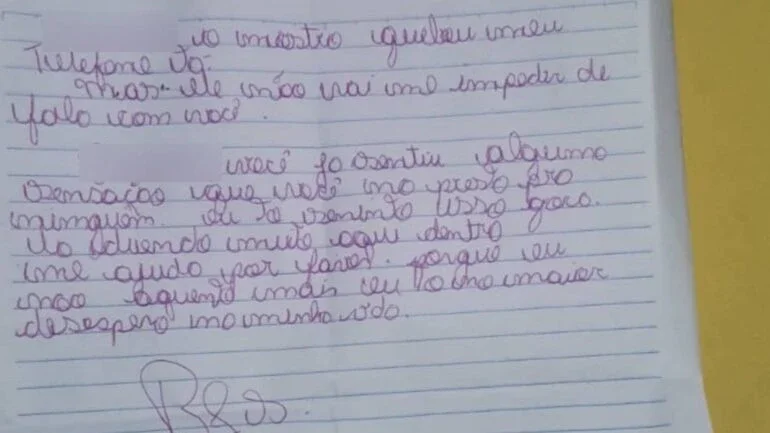 o mostro quebeu meu
Telefone Ja.
mas ele não vai me impader de
falo com você.
você ja sentiu alguma
sensação que você no presta pro
ninguém. eu to seninto isso gora.
to doendo muito aqui dentro
me ajudo por favor. porque eu
não aguento mais eu to no maior
desespero no minha vido.